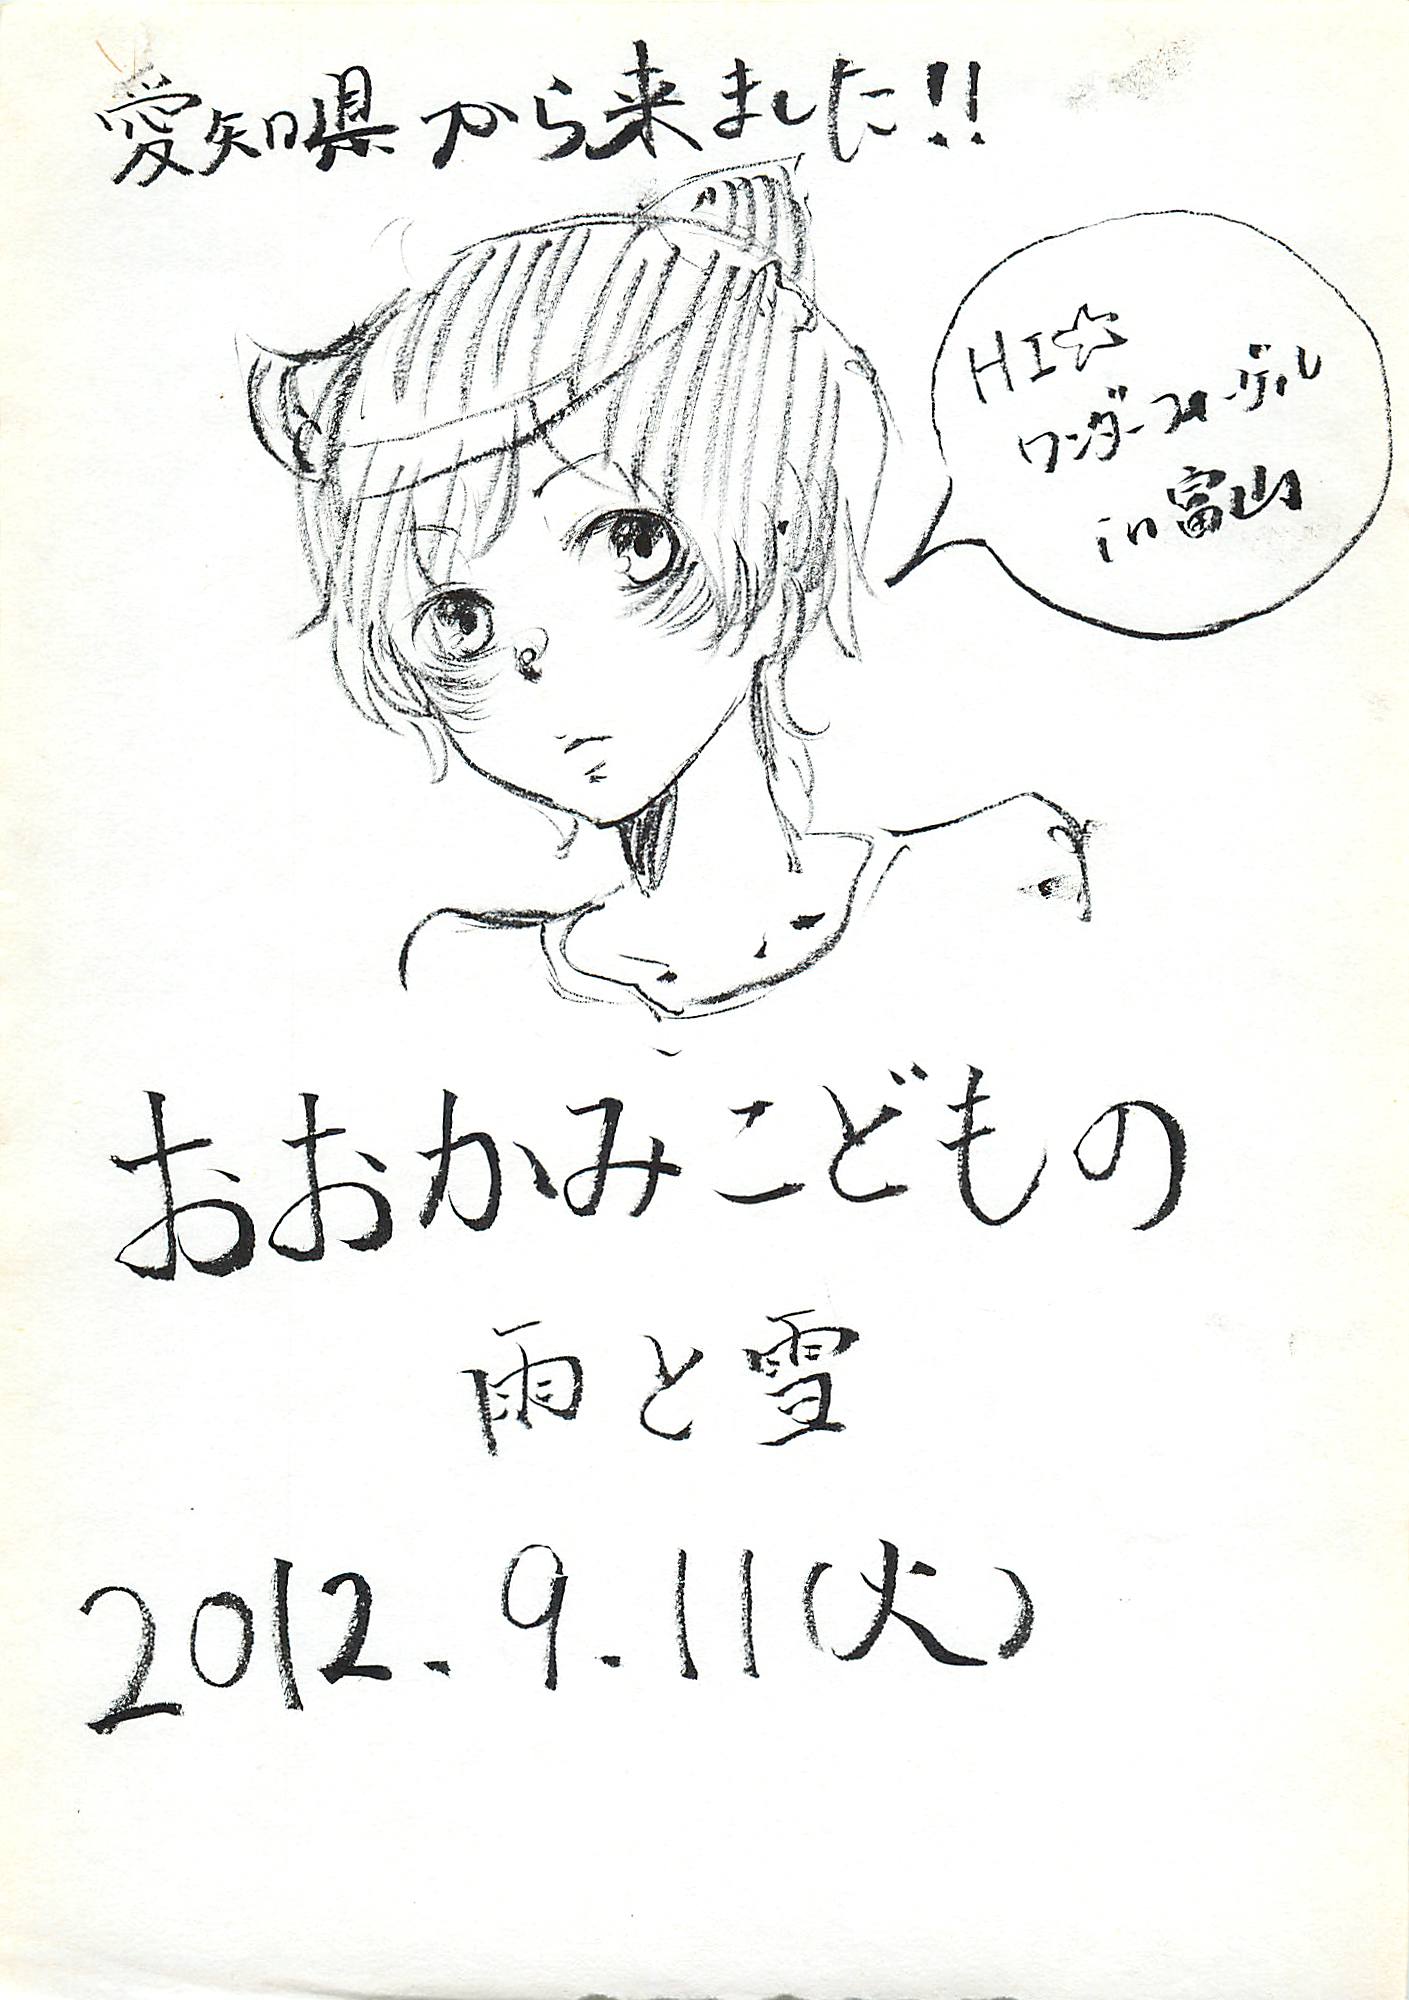 愛知県から来ました!!
HI☆
ワンダーフォーゲル
in富山
おおかみこどもの
雨と雪
2012.9.11(火)